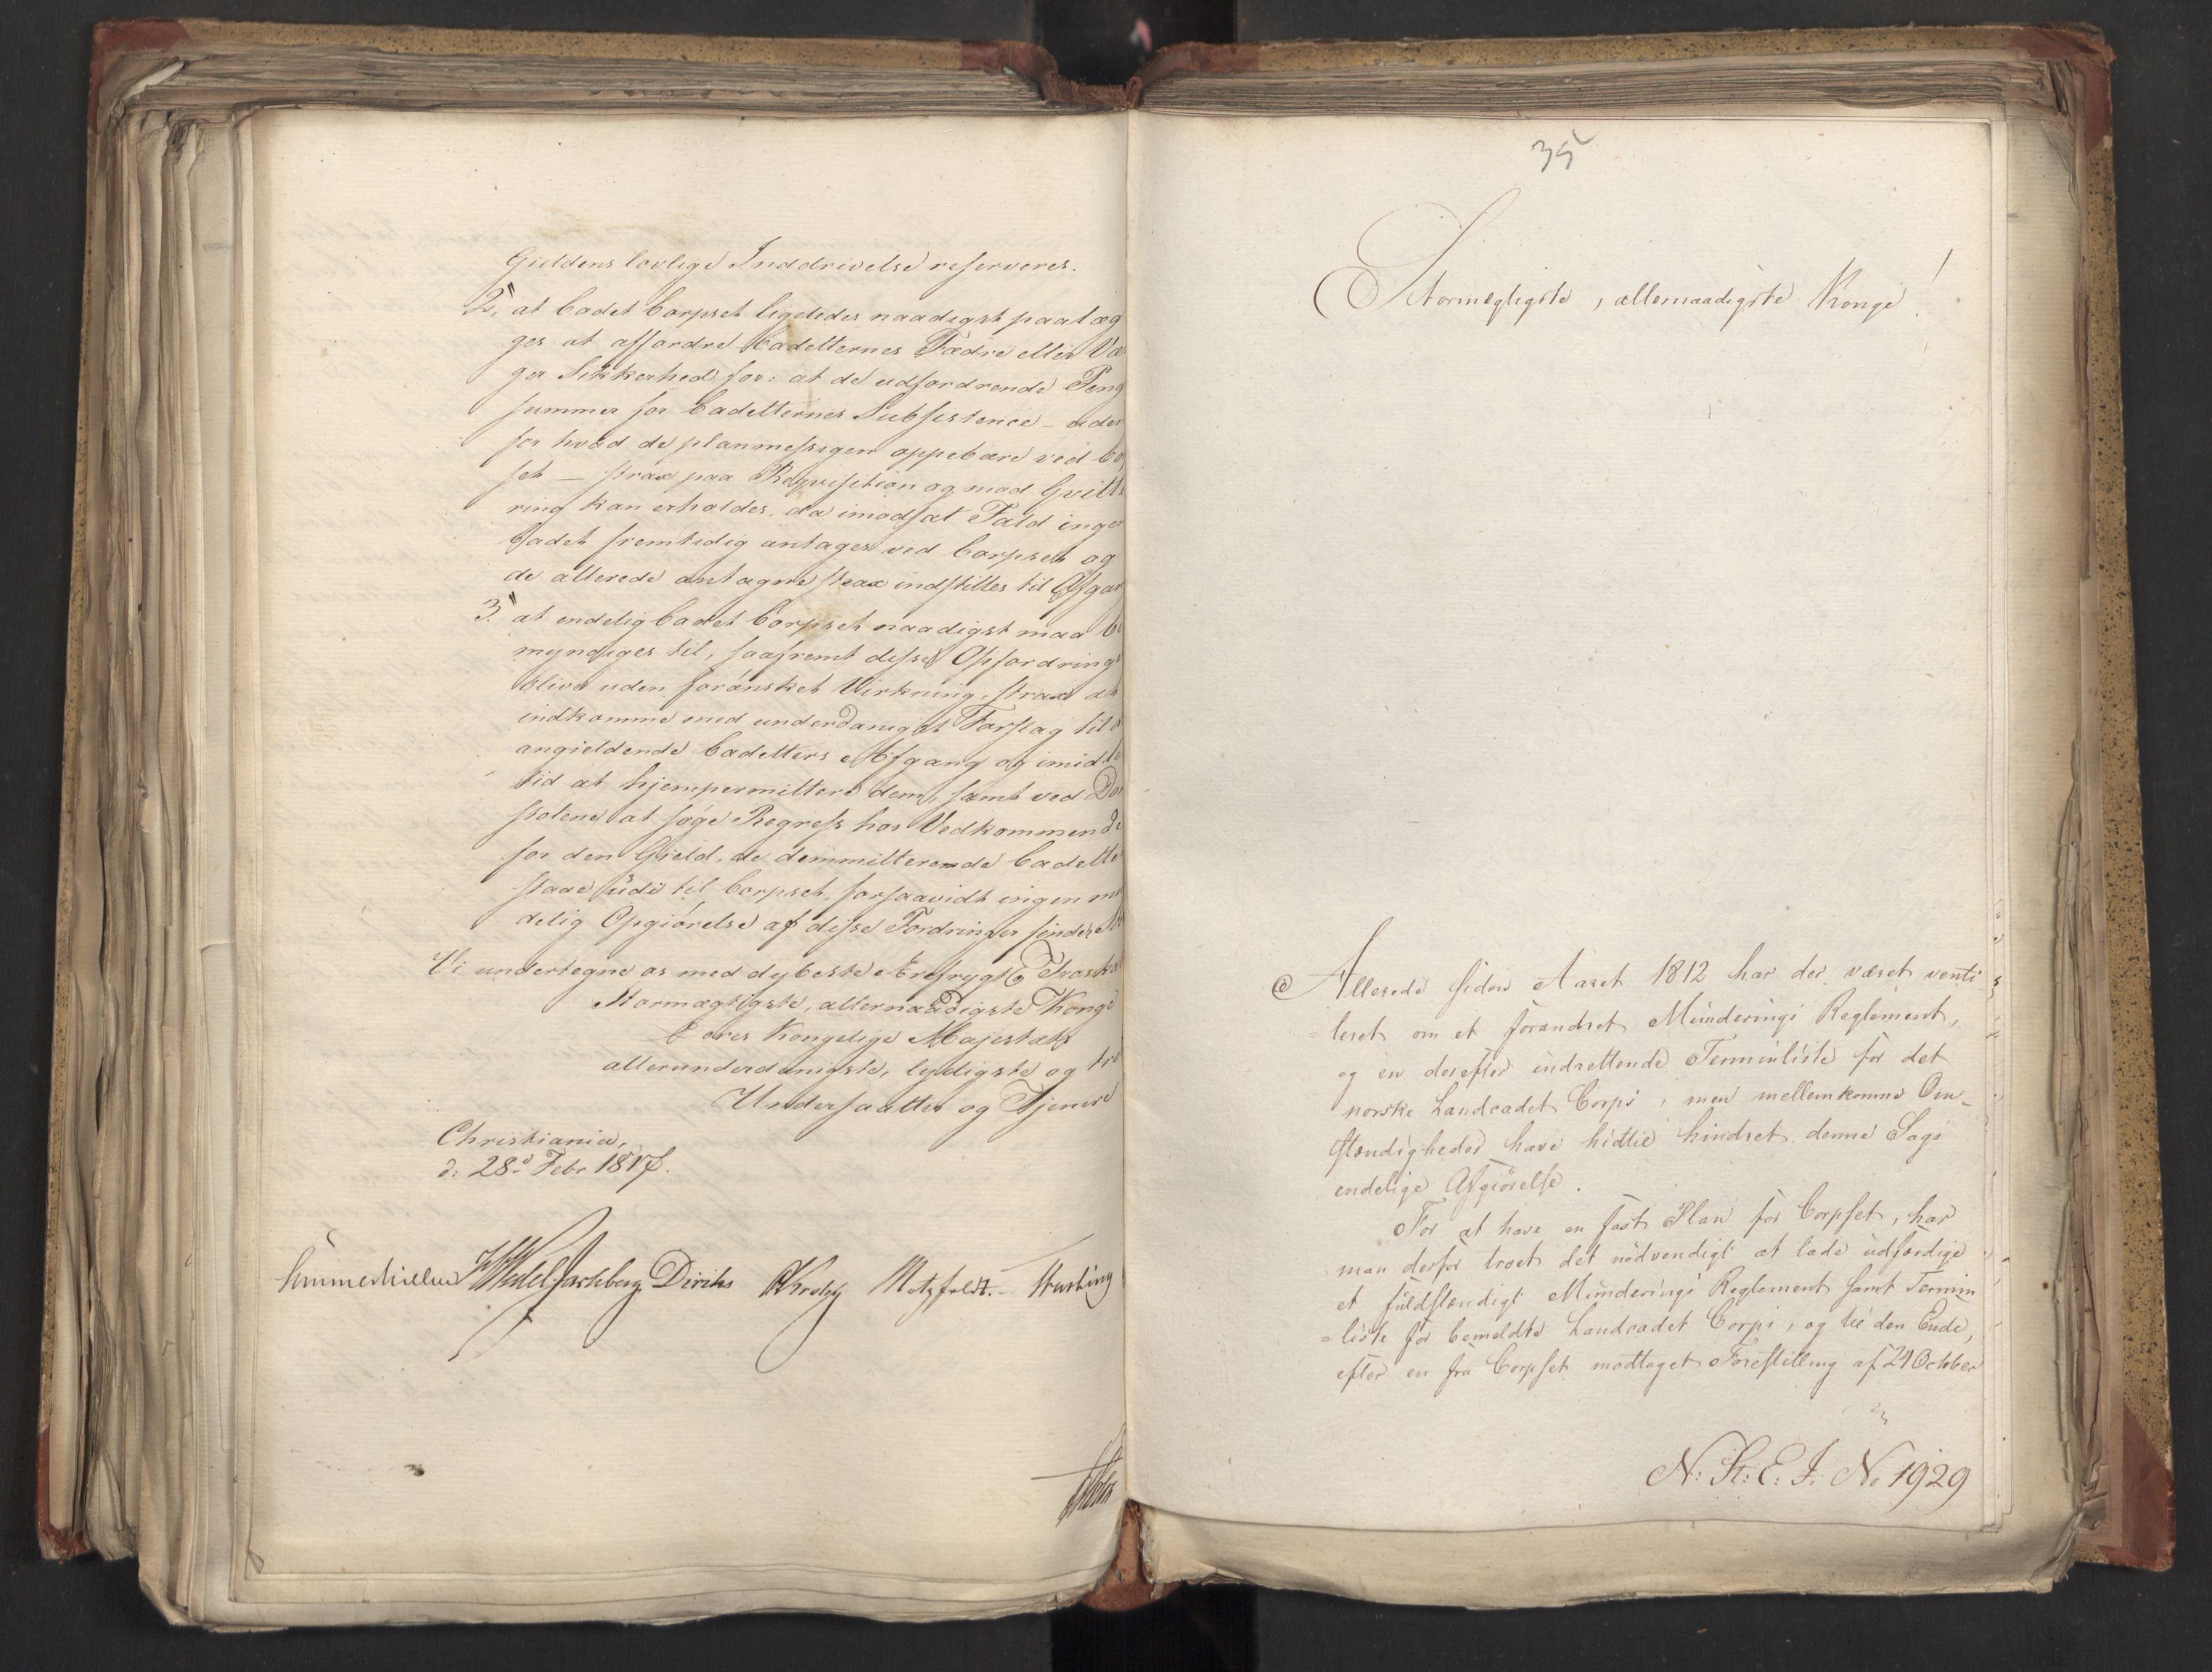 Gieldens lovlige Inddrivelse reserveres.
2, at Cadet Corpset ligeledes naadigst paalæg
ges at affordre Cadetternes Fædre eller Væ
ger Sikkerhed for: at de udfordrende Peng
summer for Cadetternes Subsistence – uden
for hvad de planmessigen oppebære ved Co
set – strax paa Reqvisition og mod Qvitt
ring kan erholdes, da imodsat Fald ingen
Cadet fremtidig antages ved Corpset og
de allerede antagne strax indstilles til Afgan
3. at endelig Cadet Corpset naadigst maa be
myndiges til, saafremt disse Opfordringe
blive uden forønsket Virkning, strax at
indkomme med underdanigst Forslag til
angieldende Cadetters Afgang og imidle
tid at hjempermittere dem, samt ved Do
stolene at søge Regress hos Vedkommende
for den Gield, de demmitterende Cadette
staae udi til Corpset, forsaavidt ingen
delig Opgiørelse af disse Fordringer finder
Vi undertegne os med dybeste Ærefrygt Troska
Stormægtigste, allernaadigste Konge
Deres Kongelige Majestæts
allerunderdanigste, lydigste og tro
Undersaatter og Tjenere
Christiania,
d: 28d Febr 1817.
Sommerhielm Wedel Jarlsberg Diriks Krohg Motzfeldt. Hasting
Holst
35
Stormægtigste, allernaadigste Konge!
Allerede siden Aaret 1812 har der været venti
leret om et forandret Munderings Reglement,
og en derefter indrettende Terminliste for det
norske Landcadet Corps, men mellemkomne Om-
stændigheder have hidtil hindret denne Sags
endelige Afgiørelse.
For at have en fast Plan for Corpset, har
man derfor troet det nødvendigt at lade udfærdige
et fuldstændigt Munderings Reglement samt Termin
=liste for bemeldte Landcadet Corps, og til den Ende,
efter en fra Corpset modtaget Forestilling af 24 October
N: St: E: J: No 1929